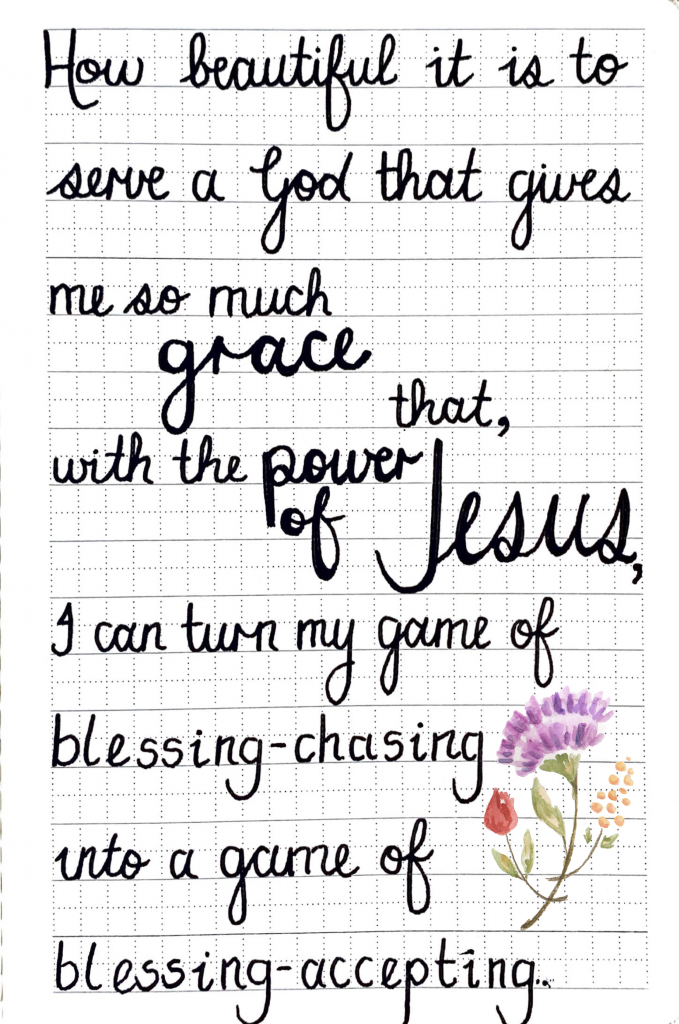 How beautiful it is to
serve a God that gives
me so much
grace
that,
with the power
of Jesus,
I can turn my game of
blessing-chasing
into a game of
blessing-accepting..